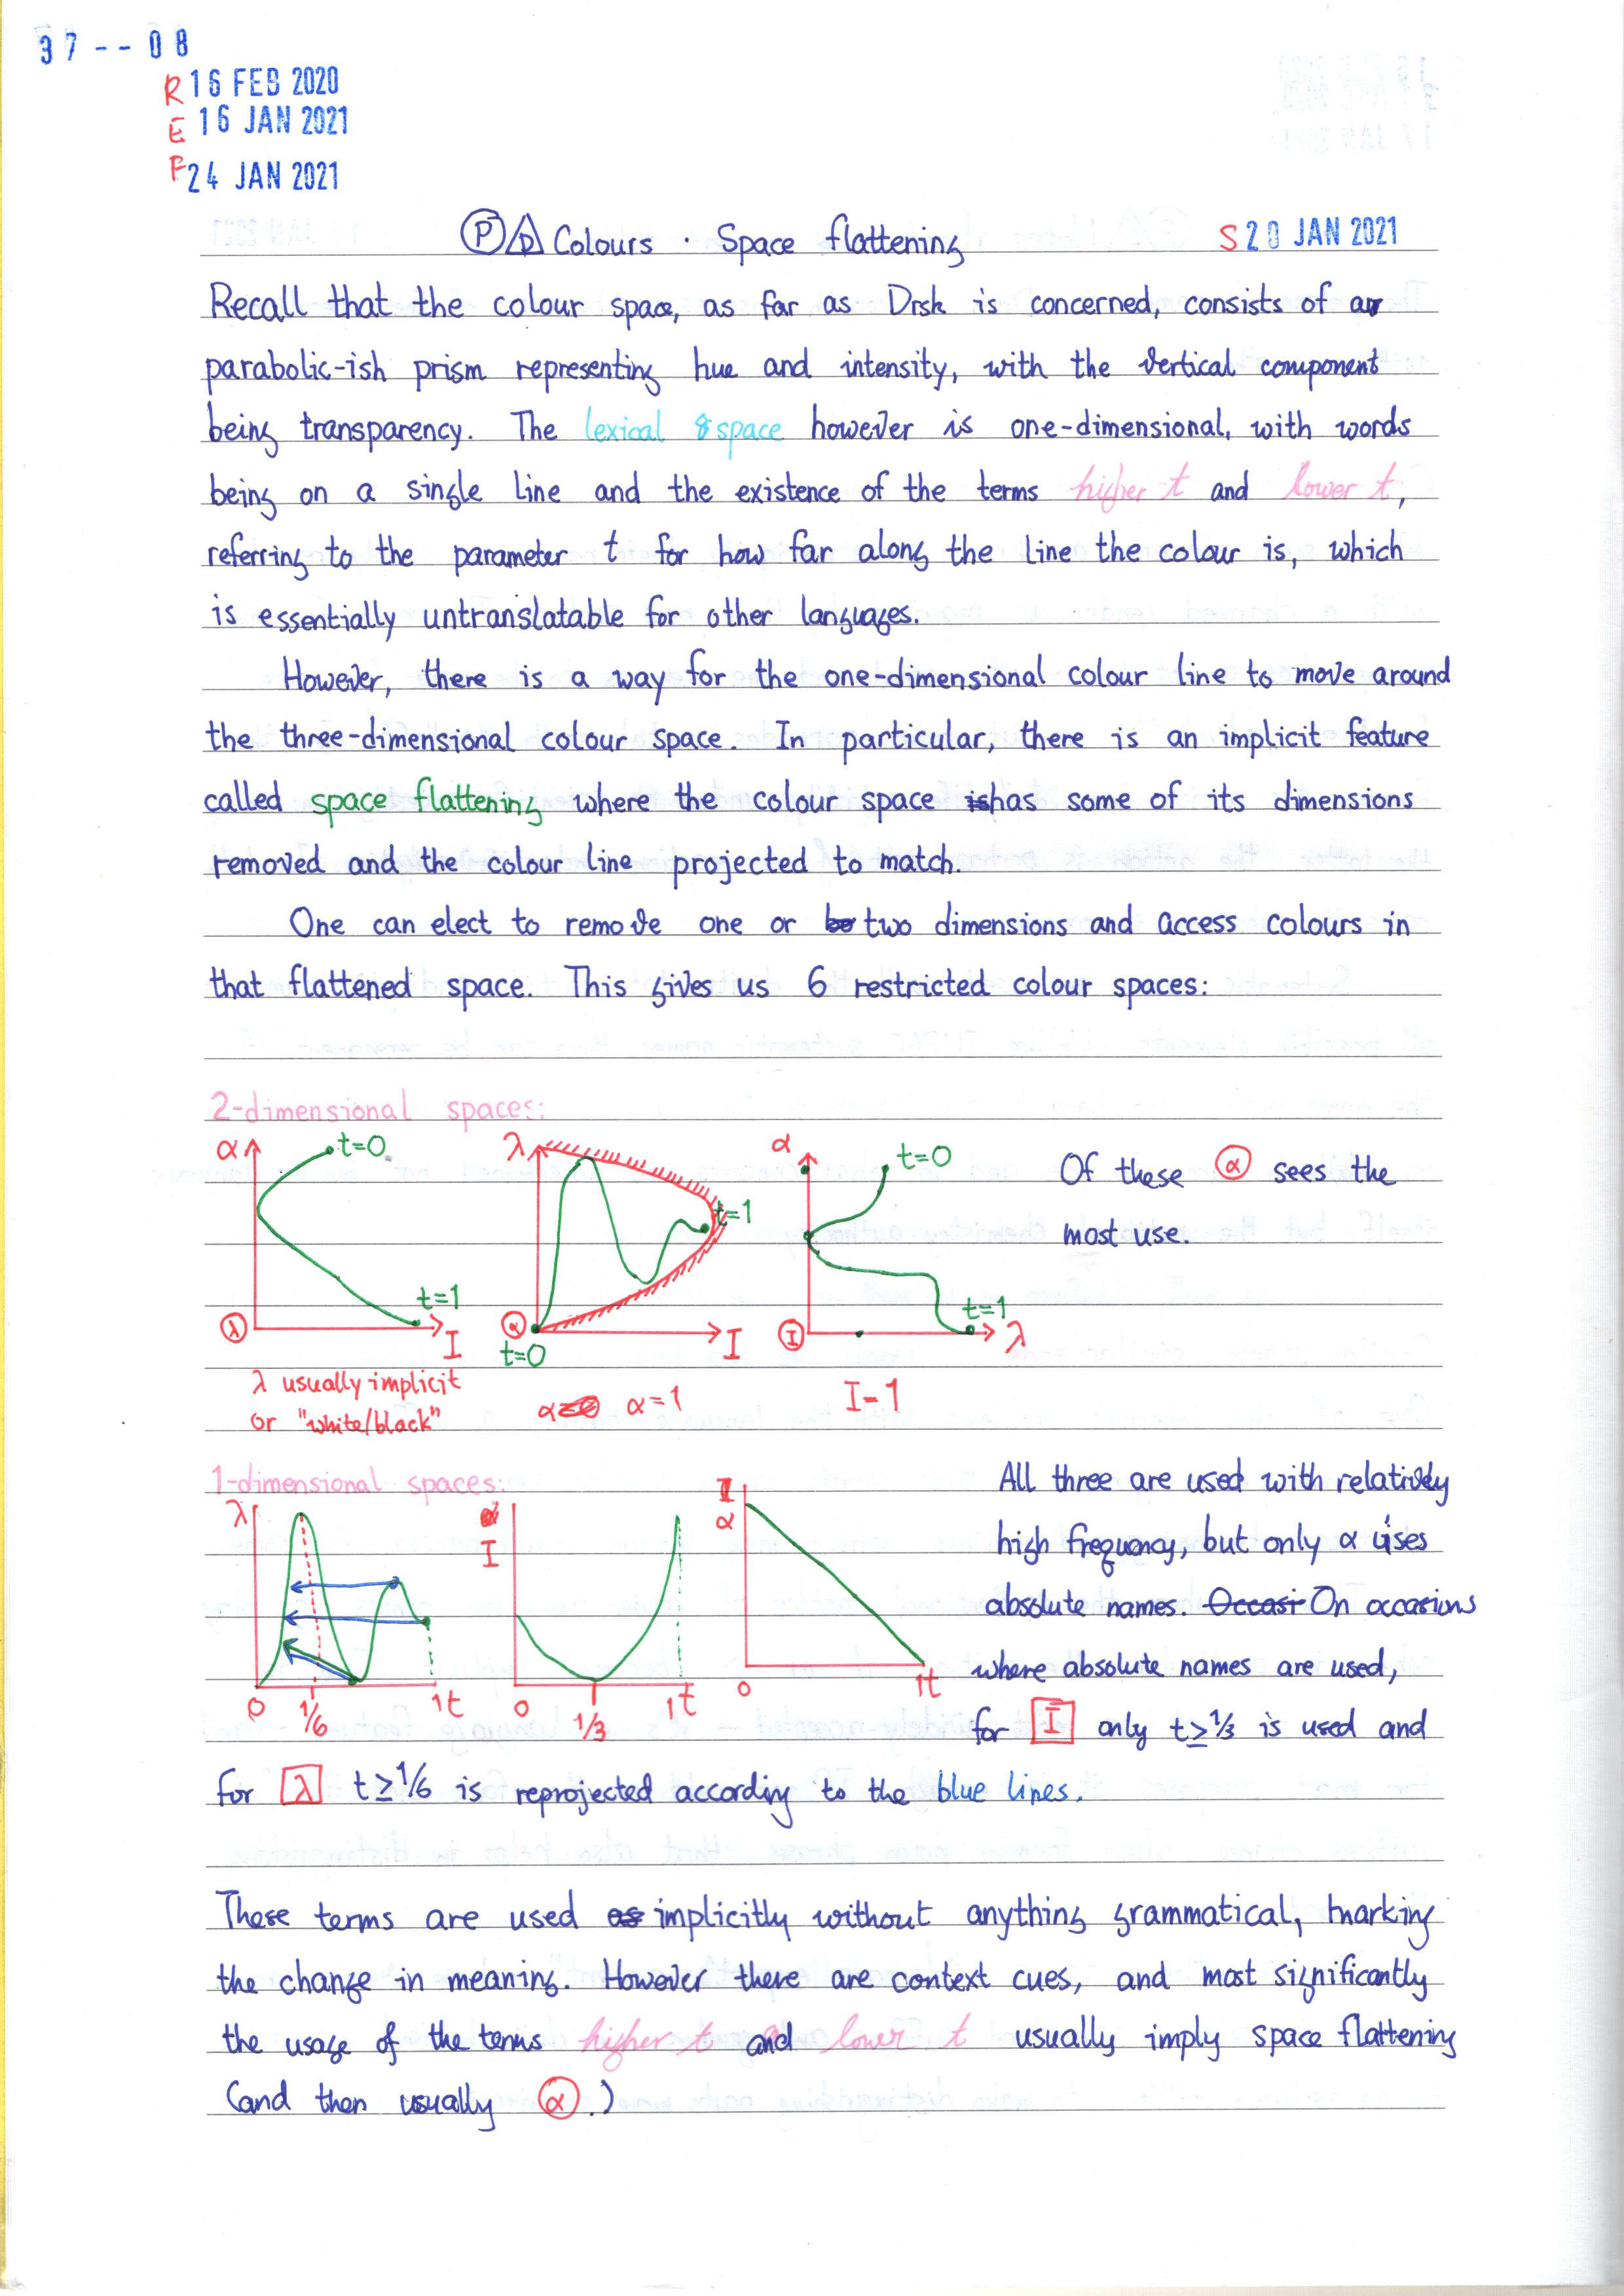 37--08
R 16 FEB 2020
E 16 JAN 2021
F 24 JAN 2021
P D Colours · Space flattening
S 20 JAN 2021
Recall that the colour space, as far as Drsk is concerned, consists of a
parabolic-ish prism representing hue and intensity, with the vertical component
being transparency. The lexical space however is one-dimensional, with words
being on a single line and the existence of the terms higher t and lower t,
referring to the parameter t for how far along the line the colour is, which
is essentially untranslatable for other languages.
However, there is a way for the one-dimensional colour line to move around
the three-dimensional colour space. In particular, there is an implicit feature
called space flattening where the colour space has some of its dimensions
removed and the colour line projected to match.
One can elect to remove one or two dimensions and access colours in
that flattened space. This gives us 6 restricted colour spaces:
2-dimensional spaces:
α t=0 t=1 λ I
λ usually implicit
or "white/black"
λ t=1 α t=0 I
α=1
α t=0 t=1 I λ
I-1
Of these α sees the
most use.
1-dimensional spaces:
λ 0 1/6 1t
I 0 1/3 1t
α 0 1t
All three are used with relatively
high frequency, but only α uses
absolute names. On occasions
where absolute names are used,
for I only t≥1/3 is used and
for λ t≥1/6 is reprojected according to the blue lines.
These terms are used implicitly without anything grammatical, marking
the change in meaning. However there are context cues, and most significantly
the usage of the terms higher t and lower t usually imply space flattening
(and then usually α.)